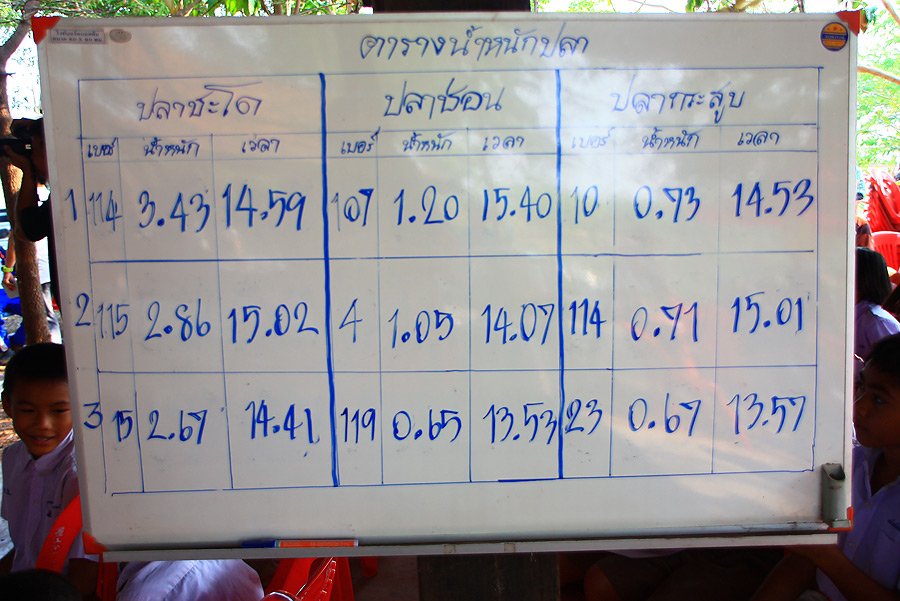 ตารางน้ำหนักปลา
ปลาชะโด ปลาช่อน ปลากระสูบ
เบอร์ น้ำหนัก เวลา เบอร์ น้ำหนัก เวลา เบอร์ น้ำหนัก เวลา
1 114 3.43 14.59 107 1.20 15.40 10 0.73 14.53
2 115 2.86 15.02 4 1.05 14.07 114 0.71 15.01
3 15 2.67 14.41 119 0.65 13.53 23 0.67 13.57